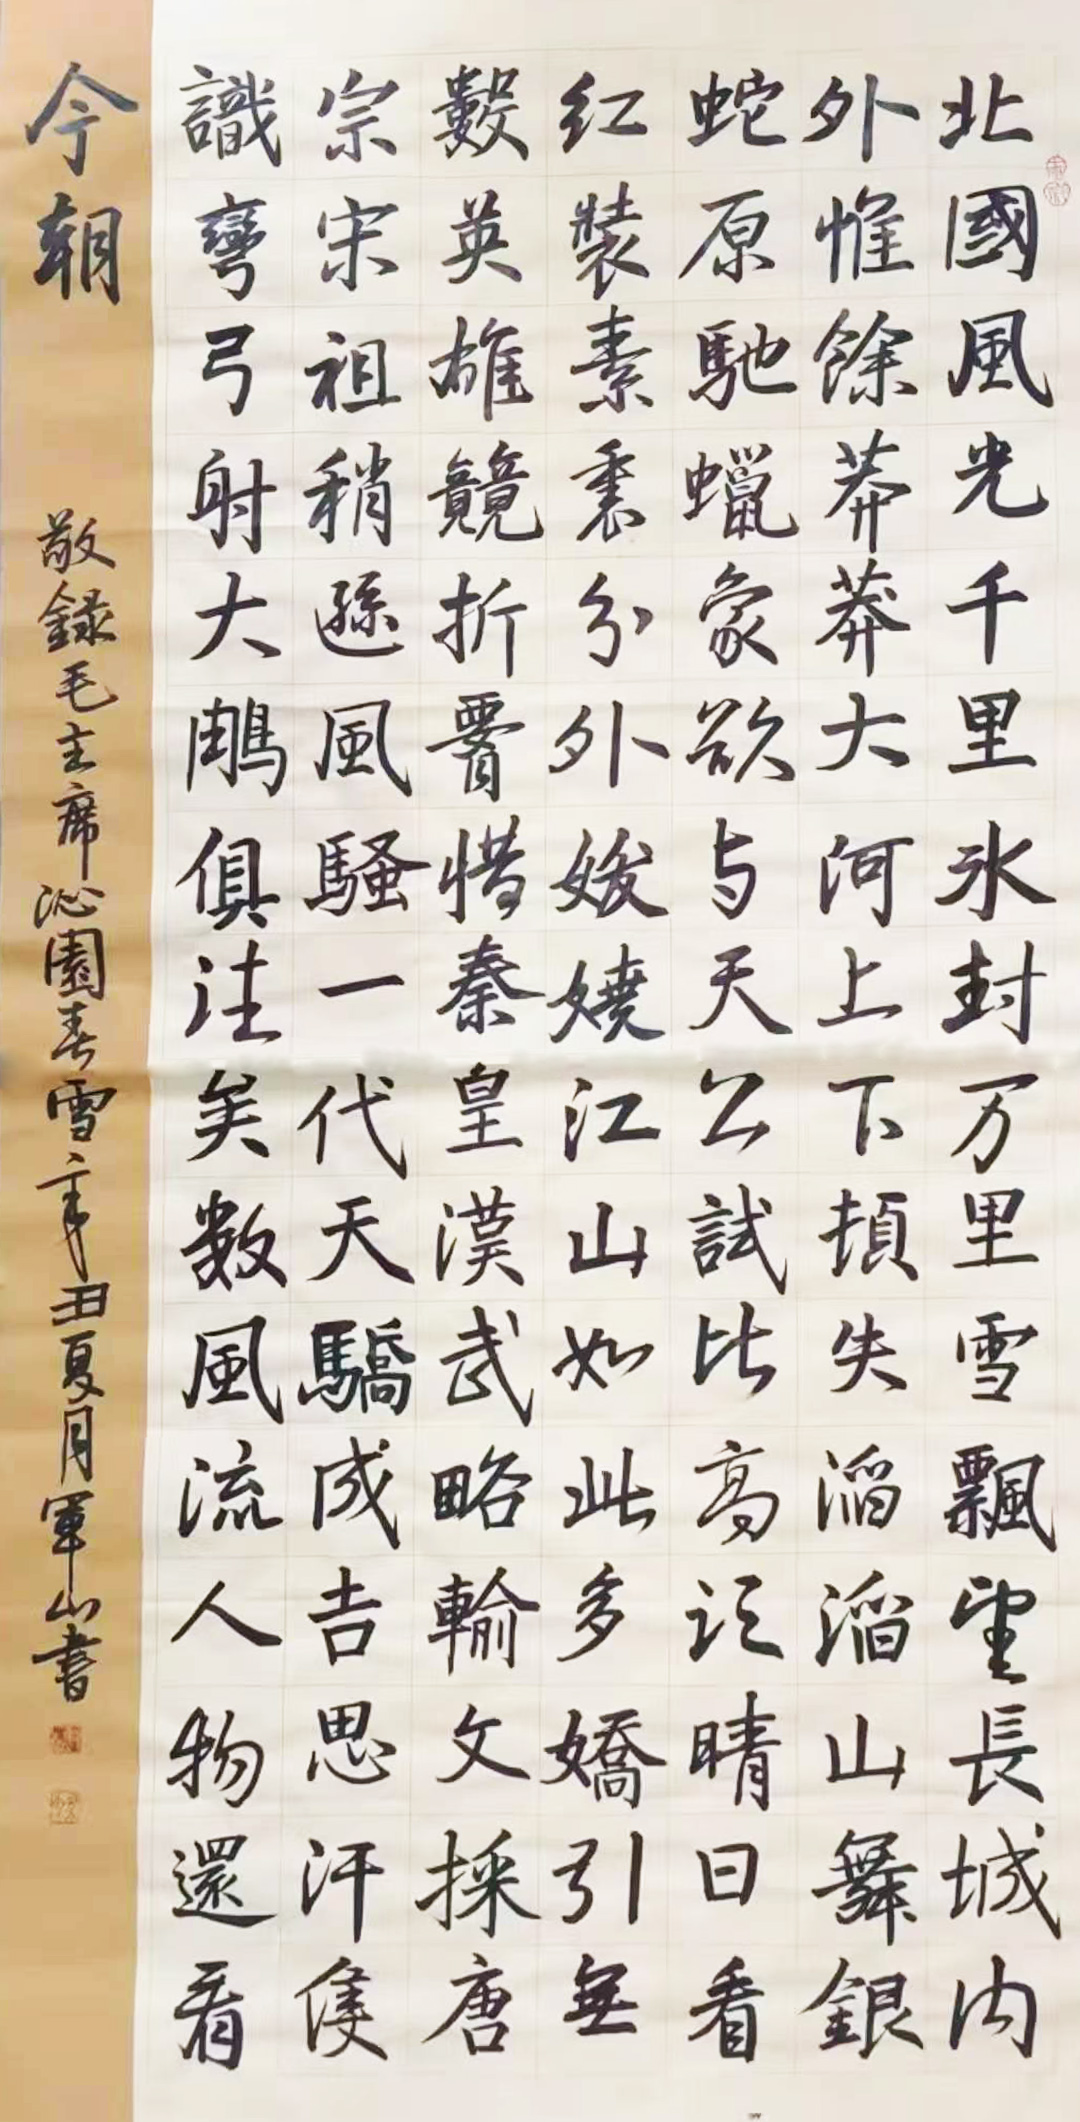 北國風光千里氷封万里雪飄望長城内
外惟餘莽莽大河上下頓失滔滔山舞銀
蛇原馳蠟象欲与天公試比高須晴日看
红裝素裹分外妖嬈江山如此多嬌引無
數英雄競折腰惜秦皇漢武略輸文採唐
宗宋祖稍遜風騷一代天驕成吉思汗隻
識彎弓射大鵰俱往矣數風流人物還看
今朝
敬録毛主席沁園春雪辛丑夏月軍山書